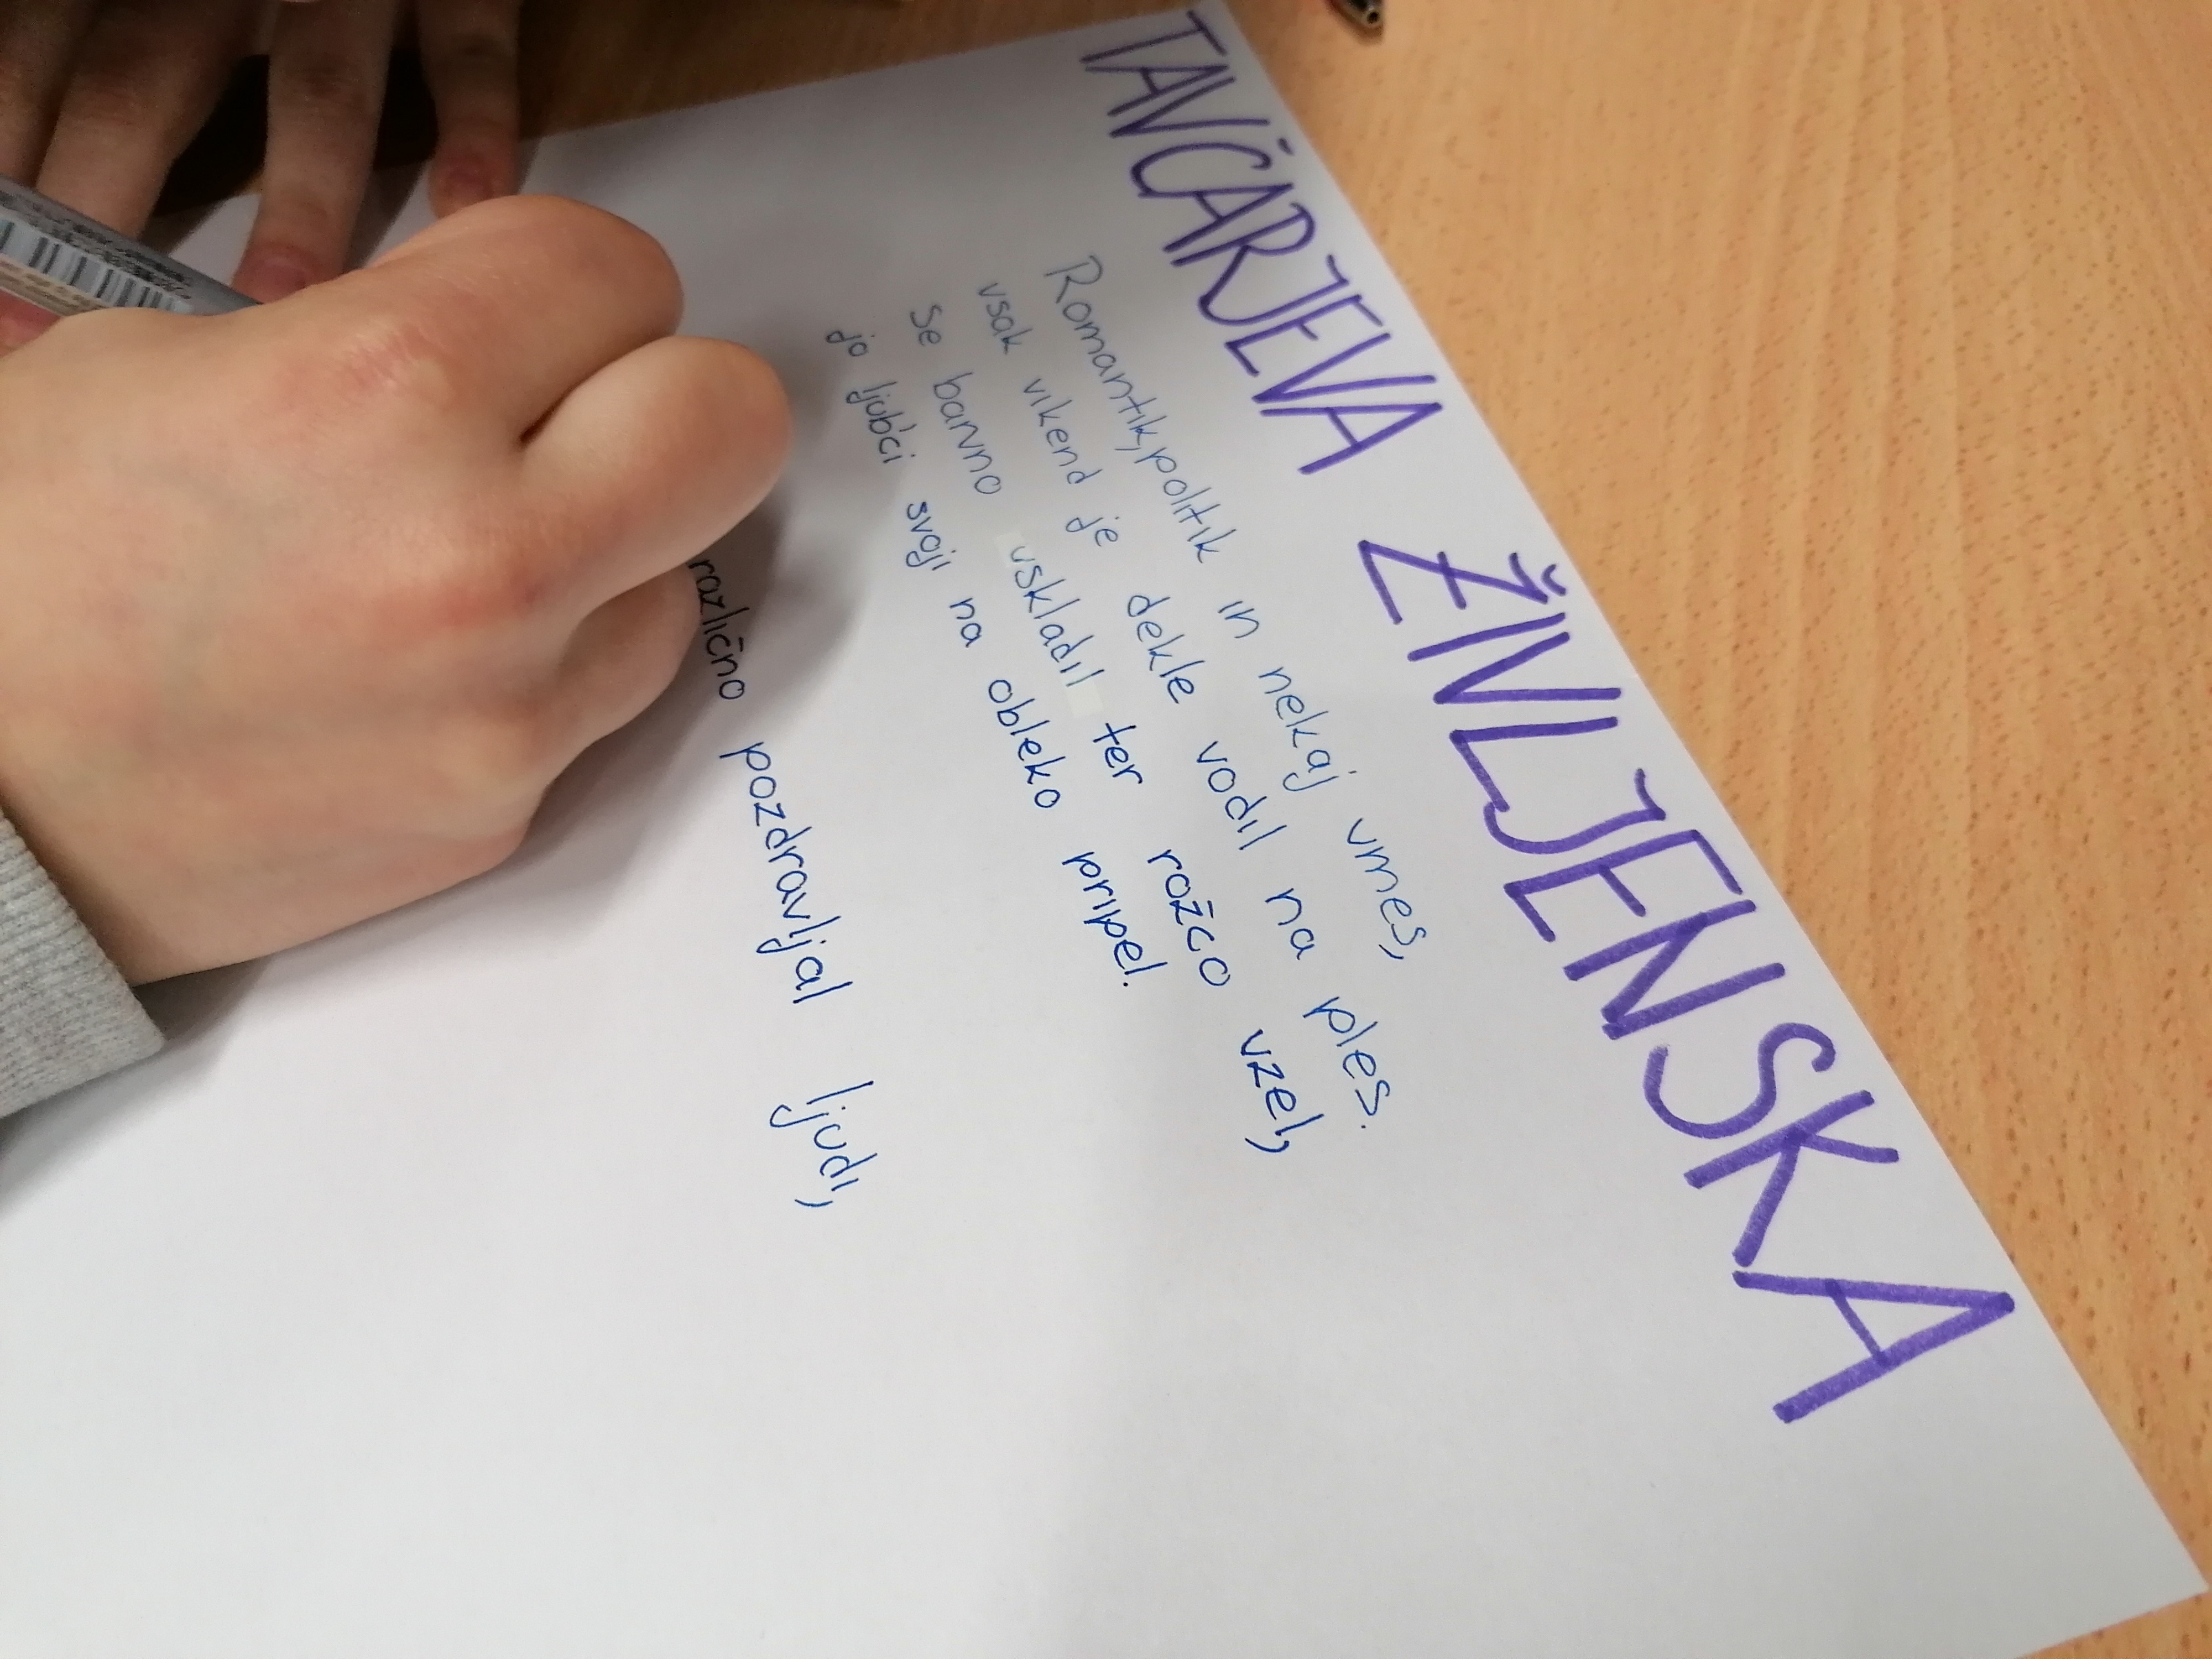 TAVČARJEVA ŽIVLJENSKA
Romantik, politik in nekaj vmes,
vsak vikend je dekle vodil na ples.
Se barvno uskladil ter rožco vzel,
jo ljub'ci svoji na obleko pripel.
različno pozdravljal ljudi,